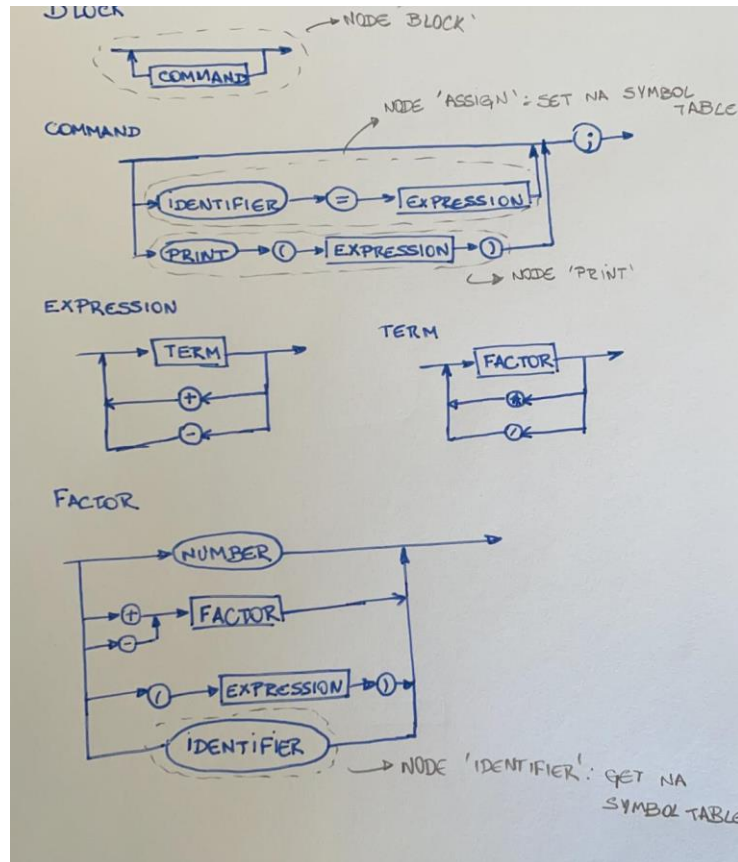 BLOCK
NODE BLOCK'
COMMAND
NODE 'ASSIGN': SET NA SYMBOL
TABLE
COMMAND
;
IDENTIFIER = EXPRESSION
PRINT ( EXPRESSION )
NODE 'PRINT'
EXPRESSION
TERM
+
-
TERM
FACTOR
*
/
FACTOR
NUMBER
+ FACTOR
-
( EXPRESSION )
IDENTIFIER
NODE 'IDENTIFIER': GET NA
SYMBOL TABLE